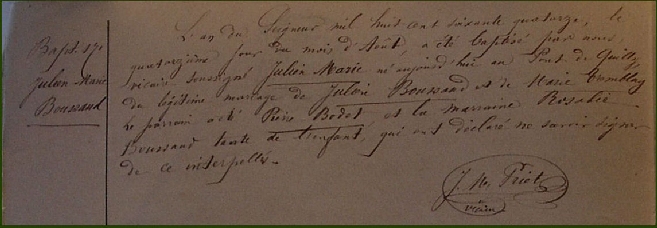 Bapt. 171
Julien Marie
Boussaud
L'an du Seigneur mil huit cent soixante quatorze, le
quatorzième jour du mois d'Août, a été baptisé par nous,
vicaire soussigné Julien Marie né aujourd'hui au Pont de Quilly
du légitime mariage de Julien Boussaud et de Marie
Le parrain a été Pierre Bodet et la marraine Rosalie
Boussaud tante de l'enfant, qui ont déclaré ne savoir signer
de ce interpellés.
J. M. Priet
vicaire